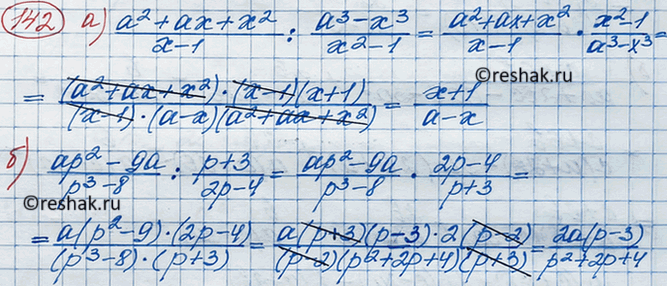 142 а) (a²+ax+x²)/(x-1) : (a³-x³)/(x²-1) = (a²+ax+x²)/(x-1) · (x²-1)/(a³-x³) =
©reshak.ru
= ((a²+ax+x²)·(x-1)(x+1))/((x-1)·(a-x)(a²+ax+x²)) = (x+1)/(a-x)
б) (ap²-9a)/(p³-8) : (p+3)/(2p-4) = (ap²-9a)/(p³-8) · (2p-4)/(p+3) =
©reshak.ru
= (a(p²-9)·(2p-4))/((p³-8)·(p+3)) = (a(p+3)(p-3)·2(p-2))/((p-2)(p²+2p+4)(p+3)) = (2a(p-3))/(p²+2p+4)